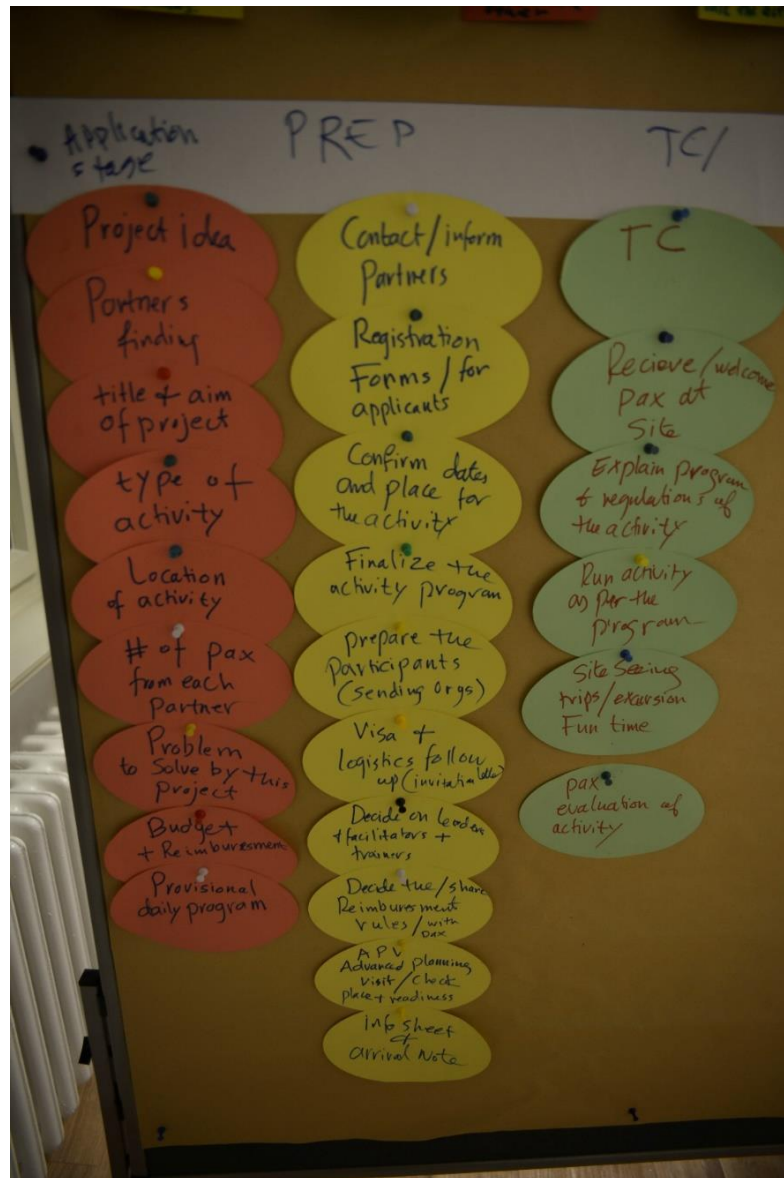 Application
stage
PREP
TC/
Project idea
Partners
finding
title & aim
of project
type of
activity
Location
of activity
# of pax
from each
Partner
Problem
to Solve by this
project
Budget
+ Reimbursement
Provisional
daily program
Contact/inform
Partners
Registration
Forms / for
applicants
Confirm dates
and place for
the activity
Finalize the
activity program
prepare the
Participants
(sending orgs)
Visa +
logistics follow
up (invitation
Decide on leaders
+ facilitators +
trainers
Decide the / share
Reimbursment
rules / with
pax
APV
Advanced planning
visit / check
place + readiness
info sheet
&
arrival Note
TC
Recieve/welcome
pax at
Site
Explain program
& regulations of
the activity
Run activity
as per the
program
Site Seeing
trips/excursion
Fun time
pax
evaluation of
activity